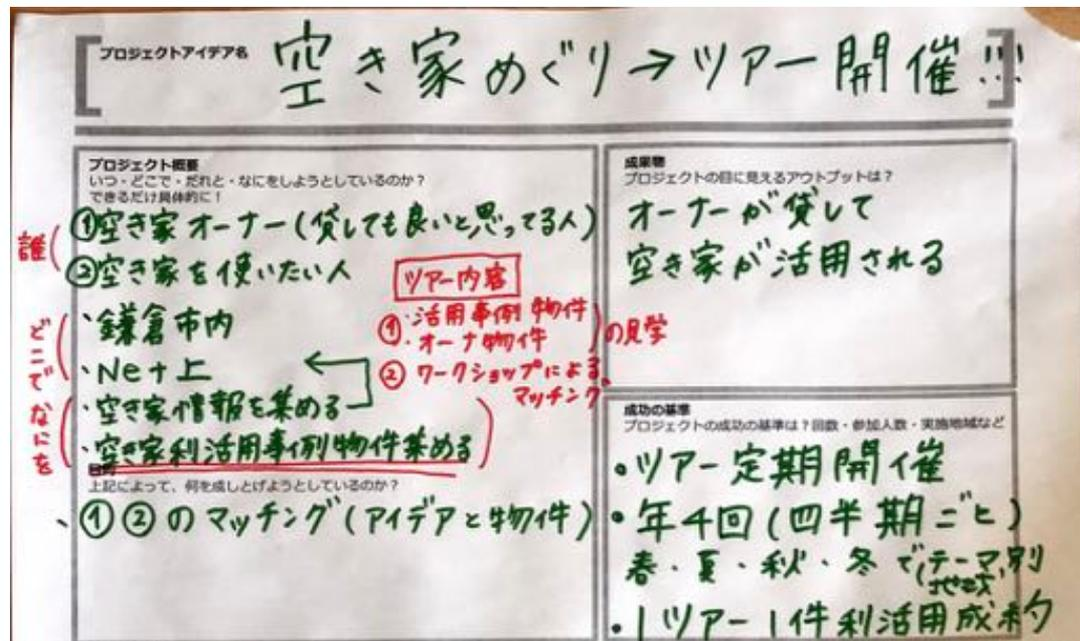 プロジェクトアイデア名
空き家めぐり→ツアー開催!!!
プロジェクト概要
いつ・どこで・だれと・なにをしようとしているのか？
できるだけ具体的に！
誰
①空き家オーナー(貸しても良いと思ってる人)
②空き家を使いたい人
どこで
・鎌倉市内
・Net上
なにを
・空き家情報を集める
・空き家利活用事例物件集める
ツアー内容
①・活用事例物件
・オーナ物件
の見学
② ワークショップによる、
マッチング
目的
上記によって、何を成しとげようとしているのか？
、①②のマッチング(アイデアと物件)
成果物
プロジェクトの目に見えるアウトプットは？
オーナーが貸して
空き家が活用される
成功の基準
プロジェクトの成功の基準は？回数・参加人数・実施地域など
・ツアー定期開催
・年4回(四半期ごと)
春・夏・秋・冬で(テーマ,別
・1ツアー1件利活用成約